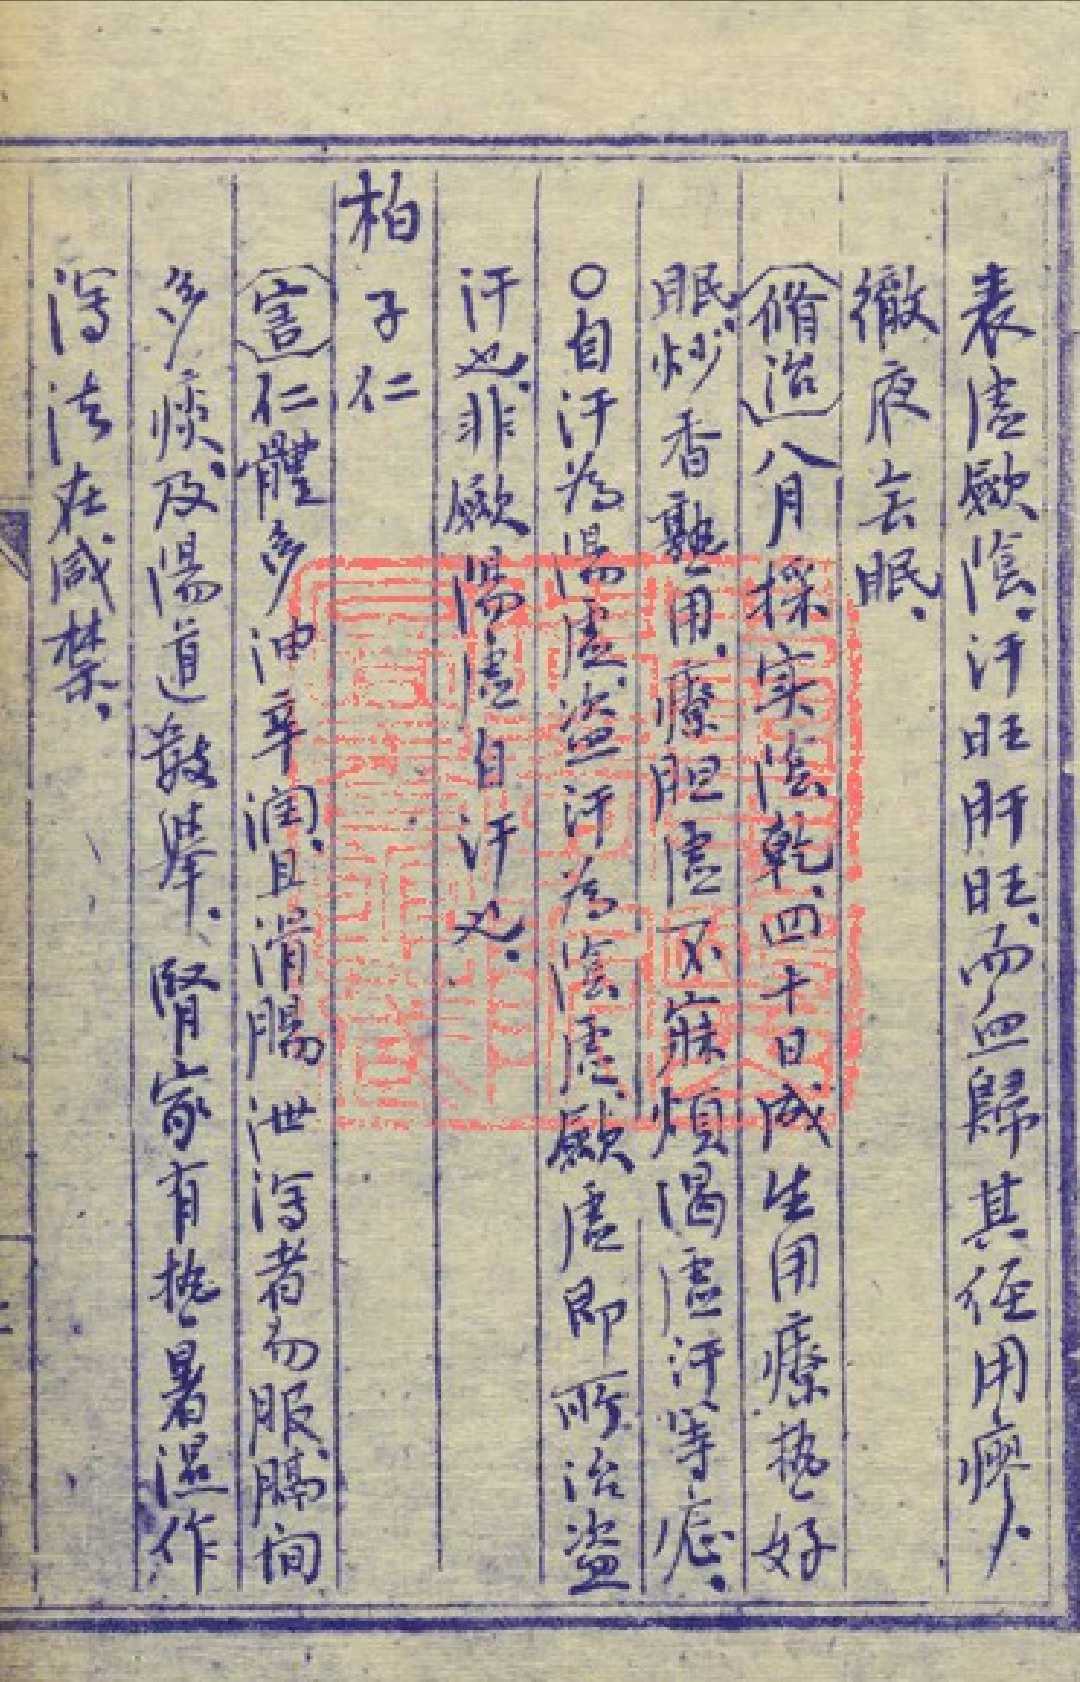 表虛厥陰、汗旺肝旺、而血歸其任用瘳、
徹夜去眠、
脩治 八月採実陰乾、四十日成、生用療热好
眠、炒香熟用、療胆虛不寐煩渴虛汗等症、
○自汗為陽虛、盗汗為陰虛、厥虛即所治盗
汗也、非厥陽虛自汗也、
柏子仁
害 仁體多油辛润、且滑腸泄瀉者勿服、膈间
多痰、及陽道数舉、腎家有热暑濕作
瀉、法在咸禁、